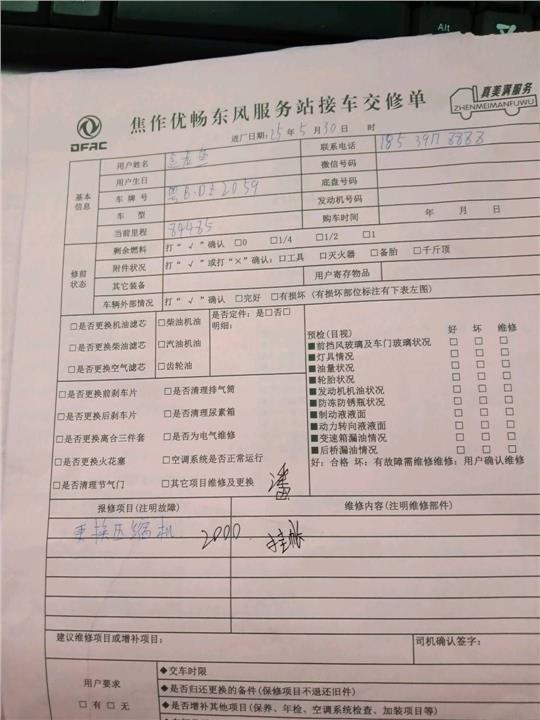 Alt
DFAC
焦作优畅东风服务站接车交修单
真美满服务
ZHENMEIMANFUWU
进厂日期:25年5月30日 时
基本信息
用户姓名
联系电话
用户生日
微信号码
车牌号 粤B·D12059
底盘号码
车型
发动机号码
当前里程 84485
购车时间 年 月 日
修前状态
剩余燃料 打“√”确认 □0 □1/4 □1/2 □1
附件状况 打“√”或打“×”确认:□工具 □灭火器 □备胎 □千斤顶
其它装备
用户寄存物品
车辆外部情况 打“√”确认 □完好 □有损坏(有损坏部位标注有下表左图)
□是否更换机油滤芯 □柴油机油
□是否更换柴油滤芯 □汽油机油
□是否更换空气滤芯 □齿轮油
是否定件:是□否□
明细:
□是否更换前刹车片 □是否清理排气筒
□是否更换后刹车片 □是否清理尿素箱
□是否更换离合三件套 □是否为电气维修
□是否更换火花塞 □空调系统是否正常运行
□是否清理节气门 □其它项目维修及更换
潘
预检(目视) 好 坏 维修
■前挡风玻璃及车门玻璃状况 □ □ □
■灯具情况 □ □ □
■油量状况 □ □ □
■轮胎状况 □ □ □
■发动机机油状况 □ □ □
■防冻防锈瓶状况 □ □ □
■制动液液面 □ □ □
■动力转向液液面 □ □ □
■变速箱漏油情况 □ □ □
■后桥漏油情况 □ □ □
好:合格 坏:有故障需维修维修:用户确认维修
报修项目(注明故障) 维修内容(注明维修部件)
更换压缩机 2000 挂帐
建议维修项目或增补项目:
司机确认签字:
用户要求
□有 □无
◆交车时限
◆是否归还更换的备件(保修项目不退还旧件)
◆是否增补其他项目(保养、年检、空调系统检查、加装项目等)